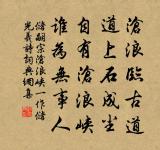 滄浪臨古道
道上石成塵
自有滄浪峽
誰為無事人
儲嗣宗滄浪峽一作儲
光羲詩詞典網集